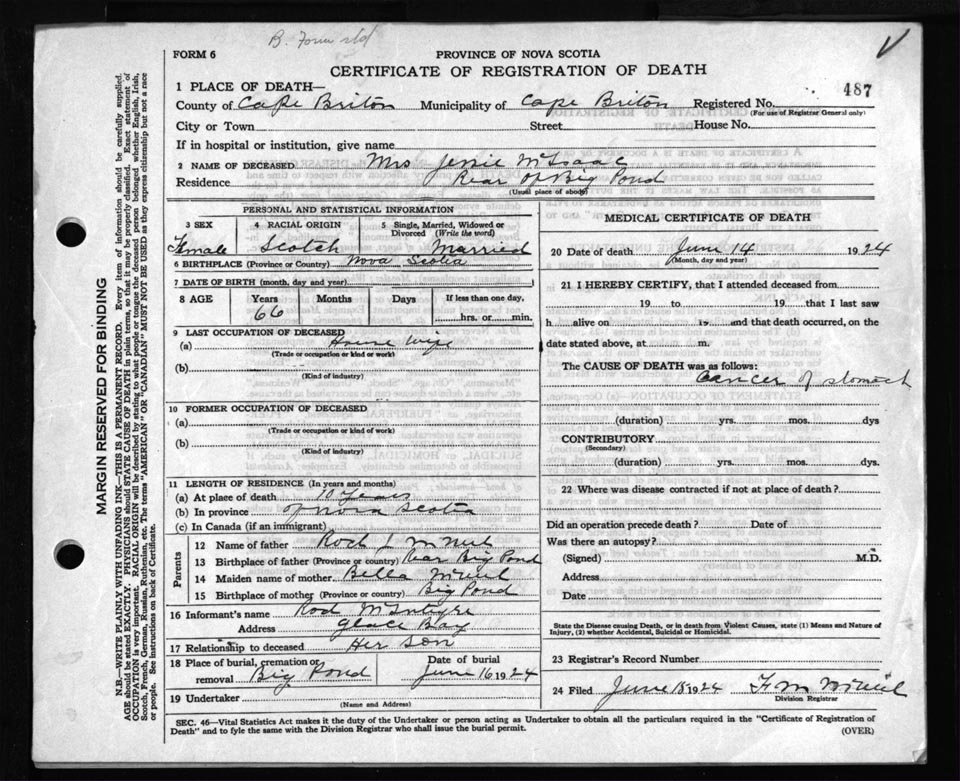 B. Form
FORM 6
PROVINCE OF NOVA SCOTIA
CERTIFICATE OF REGISTRATION OF DEATH
487
1 PLACE OF DEATH—
County of Cape Briton Municipality of Cape Briton Registered No.
(For use of Registrar General only)
City or Town Street House No.
If in hospital or institution, give name
2 NAME OF DECEASED Mrs Jessie McIsaac
Residence Rear of Big Pond
(Usual place of abode)
PERSONAL AND STATISTICAL INFORMATION
3 SEX 4 RACIAL ORIGIN 5 Single, Married, Widowed or Divorced (Write the word)
Female Scotch Married
6 BIRTHPLACE (Province or Country) Nova Scotia
7 DATE OF BIRTH (month, day and year)
8 AGE Years Months Days If less than one day,
66 hrs. or min.
9 LAST OCCUPATION OF DECEASED
(a) House wife
(Trade or occupation or kind or work)
(b)
(Kind of industry)
10 FORMER OCCUPATION OF DECEASED
(a)
(Trade or occupation or kind or work)
(b)
(Kind of industry)
11 LENGTH OF RESIDENCE (In years and months)
(a) At place of death 70 years
(b) In province of Nova Scotia
(c) In Canada (if an immigrant)
Parents
12 Name of father Rod J McNeil
13 Birthplace of father (Province or country) Rear Big Pond
14 Maiden name of mother Bella McNeil
15 Birthplace of mother (Province or country) Big Pond
16 Informant's name Rod McIntyre
Address Glace Bay
17 Relationship to deceased Her Son
18 Place of burial, cremation or removal Big Pond Date of burial June 16 1924
19 Undertaker
(Name and Address)
MEDICAL CERTIFICATE OF DEATH
20 Date of death June 14 1924
(Month, day and year)
21 I HEREBY CERTIFY, that I attended deceased from
19 to 19 that I last saw
h alive on 19 and that death occurred, on the
date stated above, at m.
The CAUSE OF DEATH was as follows:
Cancer of stomach
(duration) yrs. mos. dys
CONTRIBUTORY
(Secondary)
(duration) yrs. mos. dys.
22 Where was disease contracted if not at place of death?
Did an operation precede death? Date of
Was there an autopsy?
(Signed) M.D.
Address
Date
State the Disease causing Death, or in death from Violent Causes, state (1) Means and Nature of
Injury, (2) whether Accidental, Suicidal or Homicidal.
23 Registrar's Record Number
24 Filed June 18 1924 F M McNeil
Division Registrar
SEC. 46—Vital Statistics Act makes it the duty of the Undertaker or person acting as Undertaker to obtain all the particulars required in the "Certificate of Registration of
Death" and to fyle the same with the Division Registrar who shall issue the burial permit.
(OVER)
MARGIN RESERVED FOR BINDING
N.B.—WRITE PLAINLY WITH UNFADING INK—THIS IS A PERMANENT RECORD. Every item of information should be carefully supplied.
AGE should be stated EXACTLY. PHYSICIANS should STATE CAUSE OF DEATH in plain terms, so that it may be properly classified. Exact statement of
OCCUPATION is very important. RACIAL ORIGIN will be described by stating to what people or tongue the deceased person belonged whether English, Irish,
Scotch, French, German, Russian, Ruthenian, etc. The terms "AMERICAN" OR "CANADIAN" MUST NOT BE USED as they express citizenship but not a race
or people. See instructions on back of Certificate.